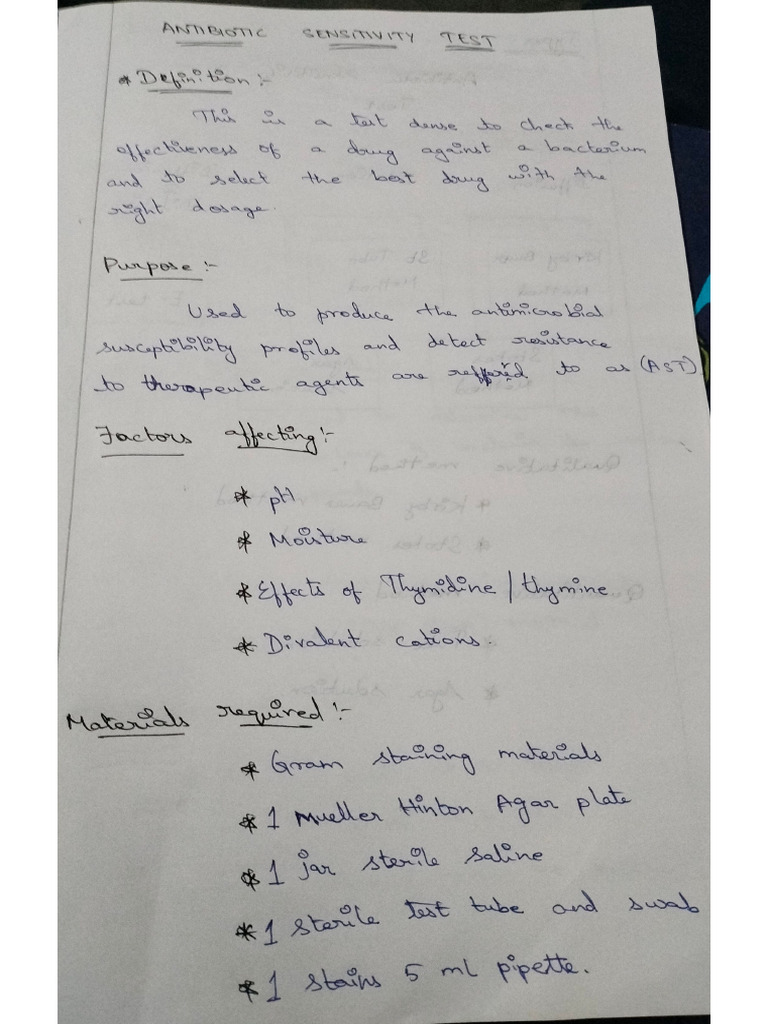 ANTIBIOTIC SENSITIVITY TEST
* Definition :-
This is a test dense to check the
effectiveness of a drug against a bacterium
and to select the best drug with the
right dosage.
Purpose :-
Used to produce the antimicrobial
susceptibility profiles and detect resistance
to therapeutic agents are reffered to as (AST)
Factors affecting :-
* pH
* Moisture
* Effects of Thymidine / thymine
* Divalent cations.
Materials required :-
* Gram staining materials
* 1 Mueller Hinton Agar plate
* 1 jar sterile saline
* 1 sterile test tube and swab
* 1 stains 5 ml pipette.